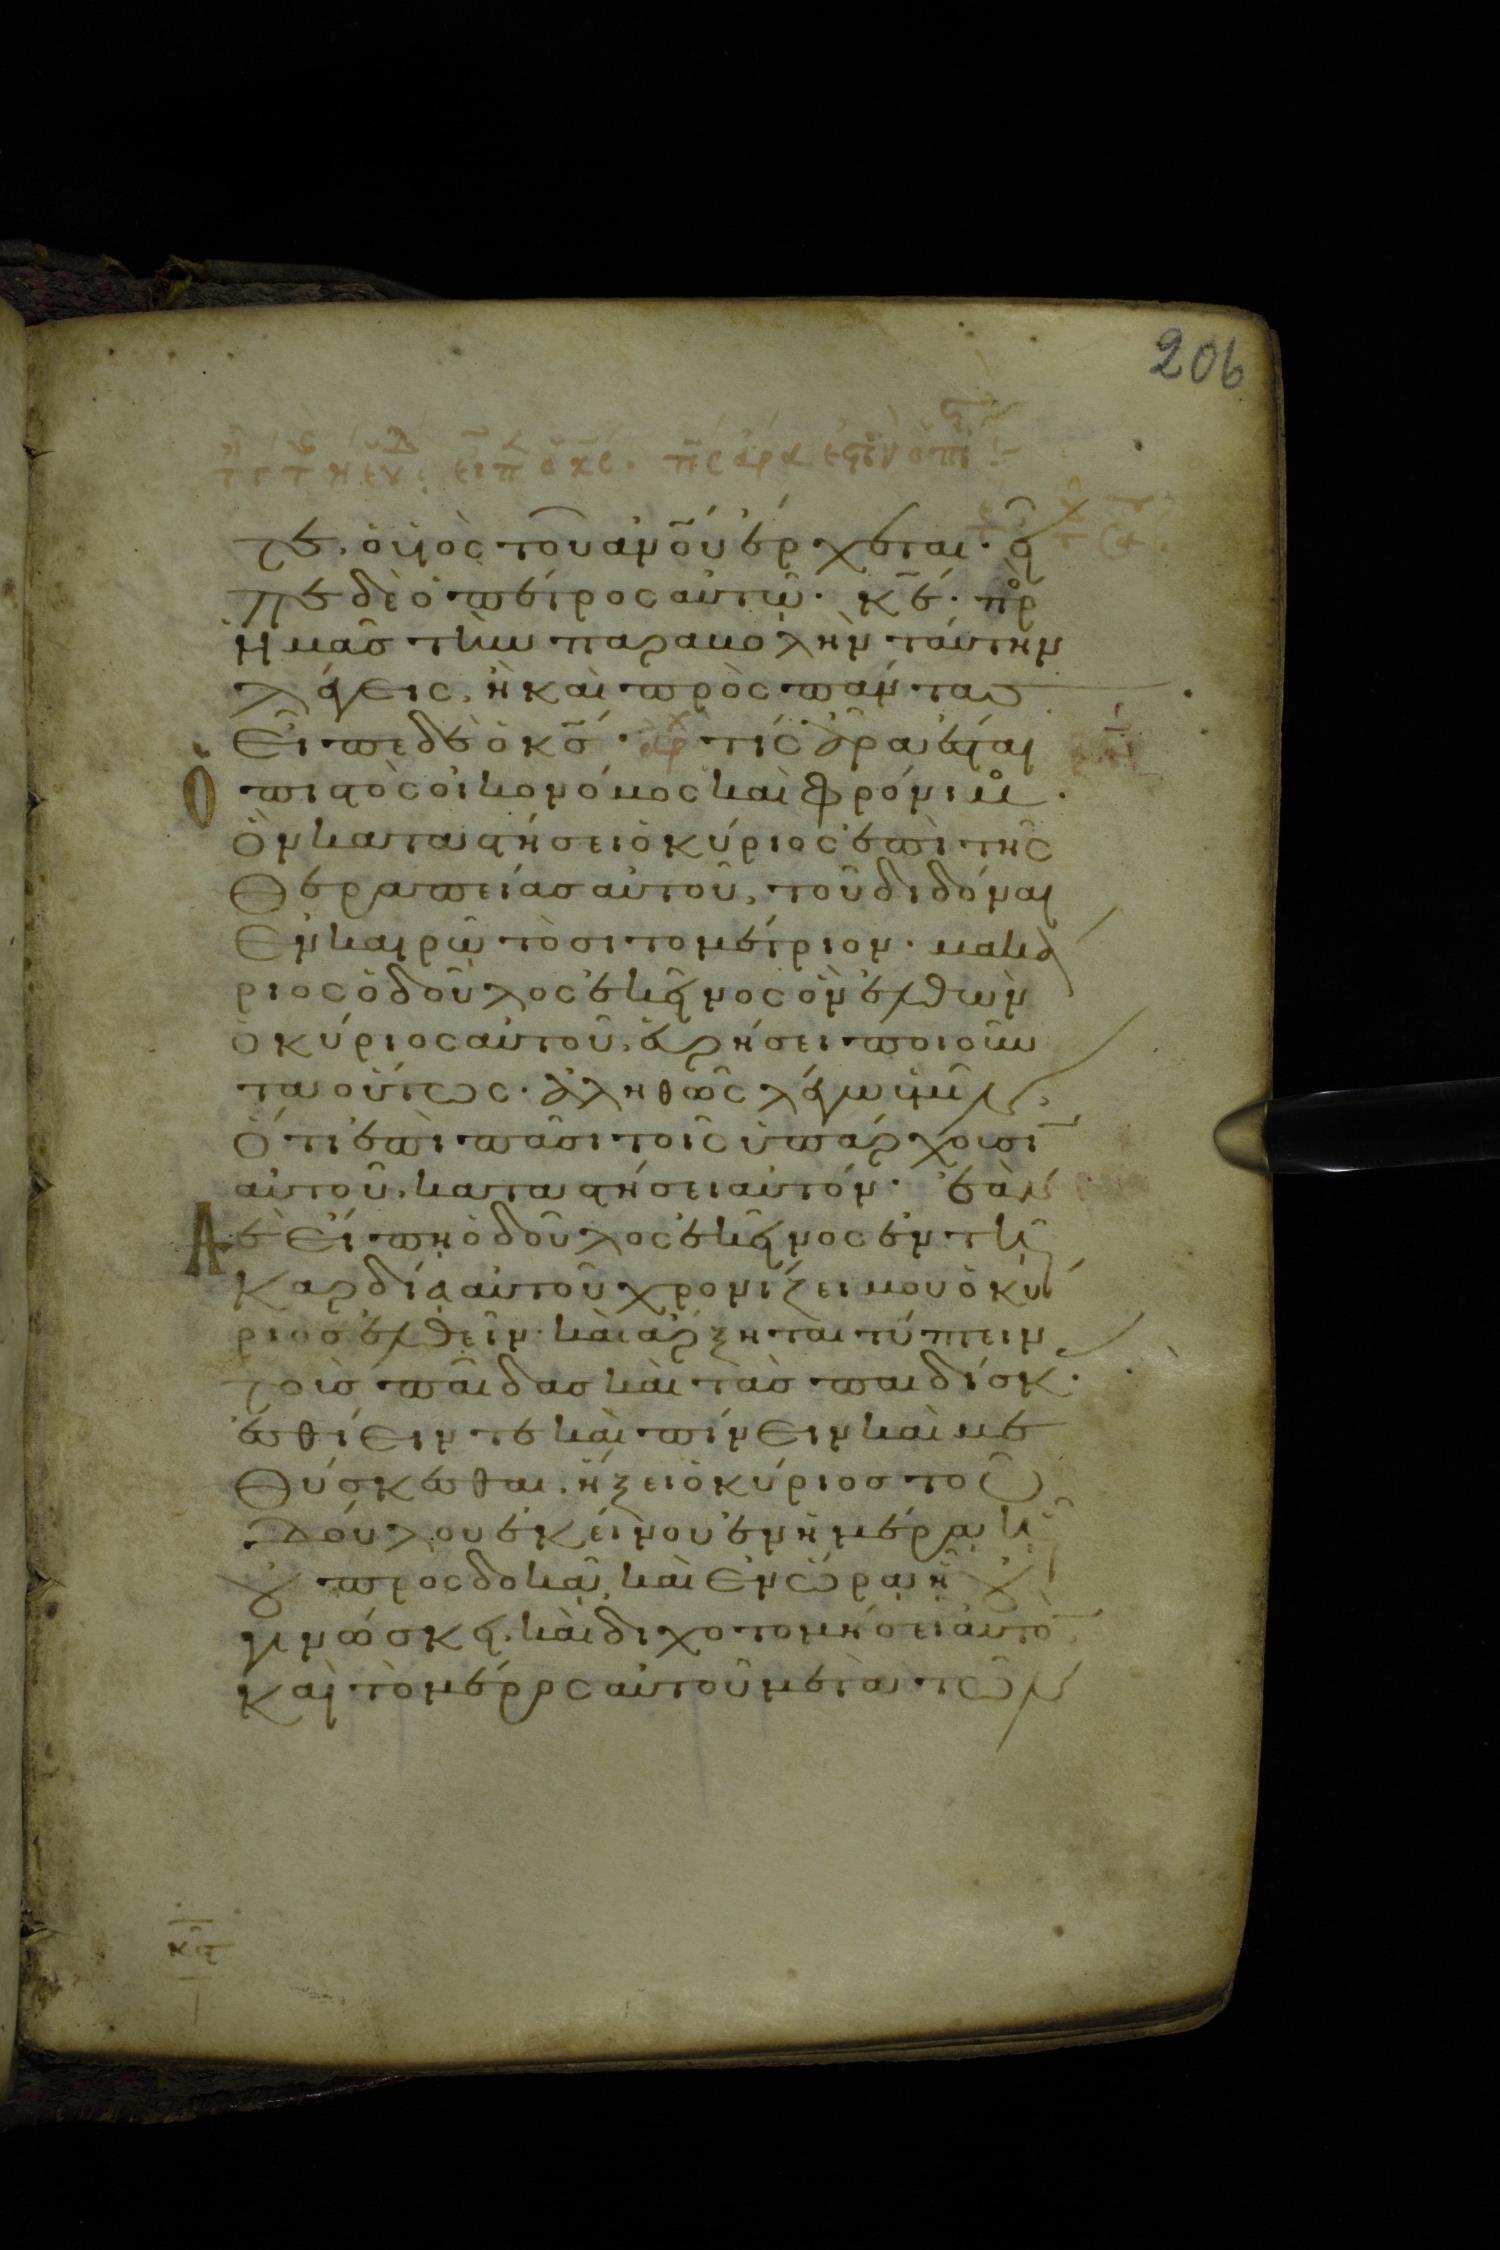 206
τε. ὁ υἱὸς τοῦ ἀν̅ου ἔρχεται. εἶ
πε δὲ ὁ πέτρος αὐτῷ. κ̅ε. πρ
ἡμᾶς τὴν παραβολὴν ταύτην
λέγεις, ἢ καὶ πρὸς πάντας
Εἶπε δὲ ὁ κ̅ς. τίς ἄρα ἐστὶ
πιστὸς οἰκονόμος καὶ φρόνιμ.
Ὃν καταστήσει ὁ κύριος ἐπὶ τῆς
Θεραπείας αὐτοῦ, τοῦ διδόναι
Ἐν καιρῷ τὸ σιτομέτριον. μακά
ριος ὁ δοῦλος ἐκεῖνος ὃν ἐλθὼν
ὁ κύριος αὐτοῦ, εὑρήσει ποιοῦν
τα οὕτως. ἀληθῶς λέγω ὑμῖν,
Ὅτι ἐπὶ πᾶσι τοῖς ὑπάρχουσι
αὐτοῦ, καταστήσει αὐτόν. ἐὰν
δὲ εἴπῃ ὁ δοῦλος ἐκεῖνος ἐν τῇ
Καρδίᾳ αὐτοῦ χρονίζει μου ὁ κύ
ριος ἐλθεῖν. καὶ ἄρξηται τύπτειν
τοὺς παῖδας καὶ τὰς παιδίσκ.
ἐσθίειν τε καὶ πίνειν καὶ με
Θύσκεσθαι, ἥξει ὁ κύριος τοῦ
Δούλου ἐκείνου ἐν ἡμέρᾳ ᾗ
οὐ προσδοκᾷ, καὶ ἐν ὥρᾳ ᾗ οὐ
γινώσκει. καὶ διχοτομήσει αὐτὸ
Καὶ τὸ μέρος αὐτοῦ μετὰ τῶν
κϛ